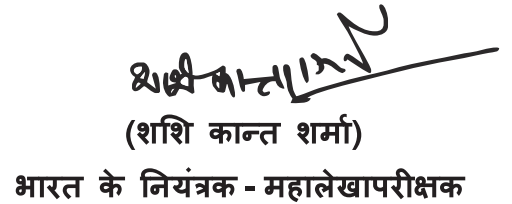 शशि कान्त शर्मा
(शशि कान्त शर्मा)
भारत के नियंत्रक - महालेखापरीक्षक